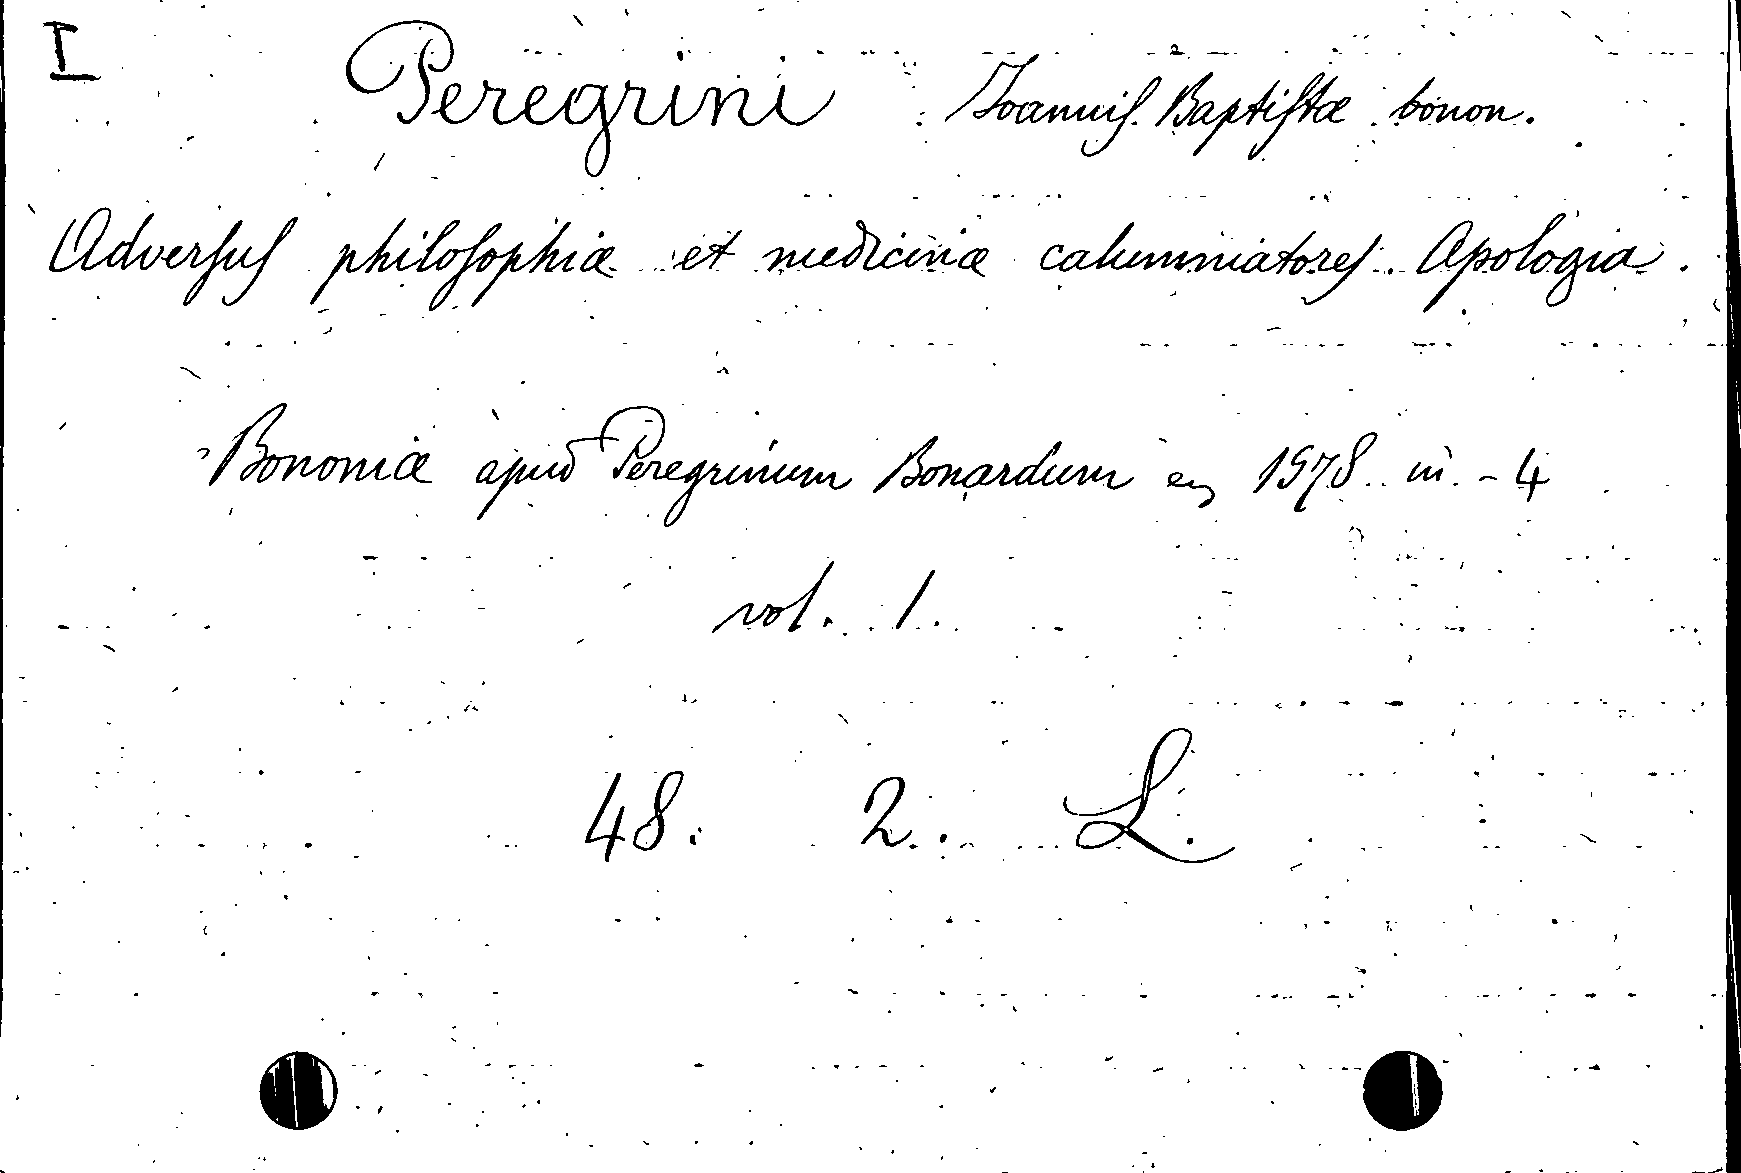 I
Peregrini Joannis Baptistæ bonon.
Adversus philosophiæ et medicinæ calumniatores. Apologia.
Bononiæ apud Peregrinum Bonardum 1578 in - 4
vol. 1.
48. 2. L.